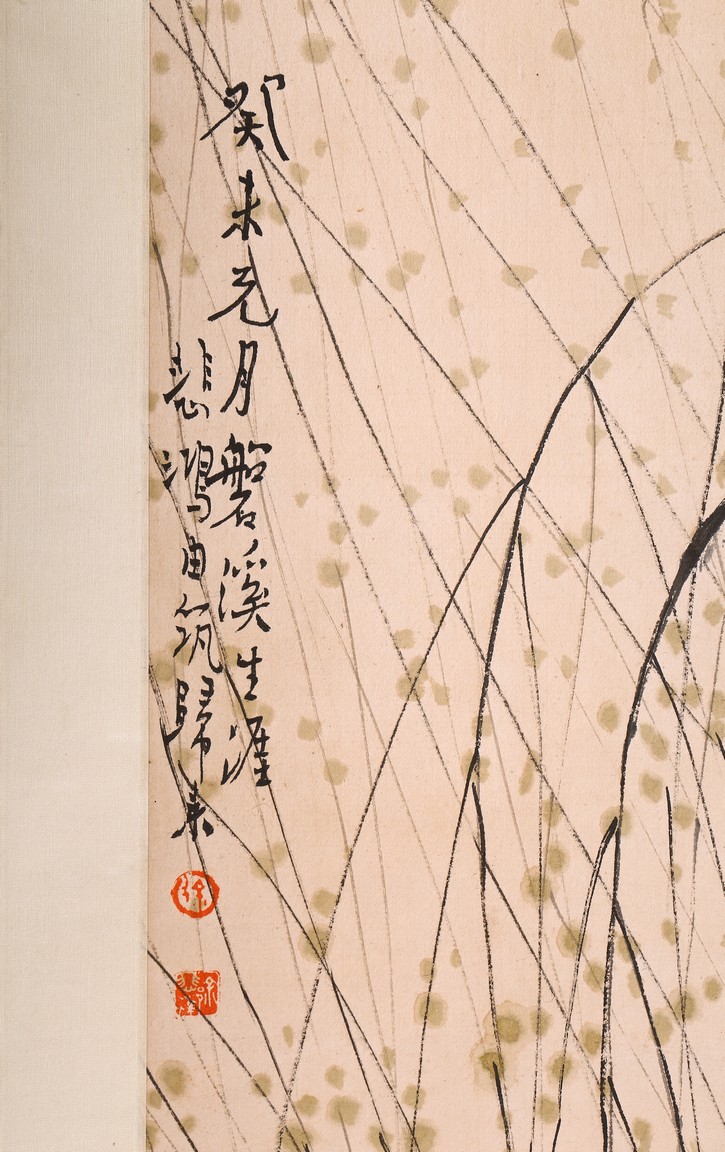 癸未元月磐溪生涯
悲鴻由筑歸来
徐
徐悲鴻